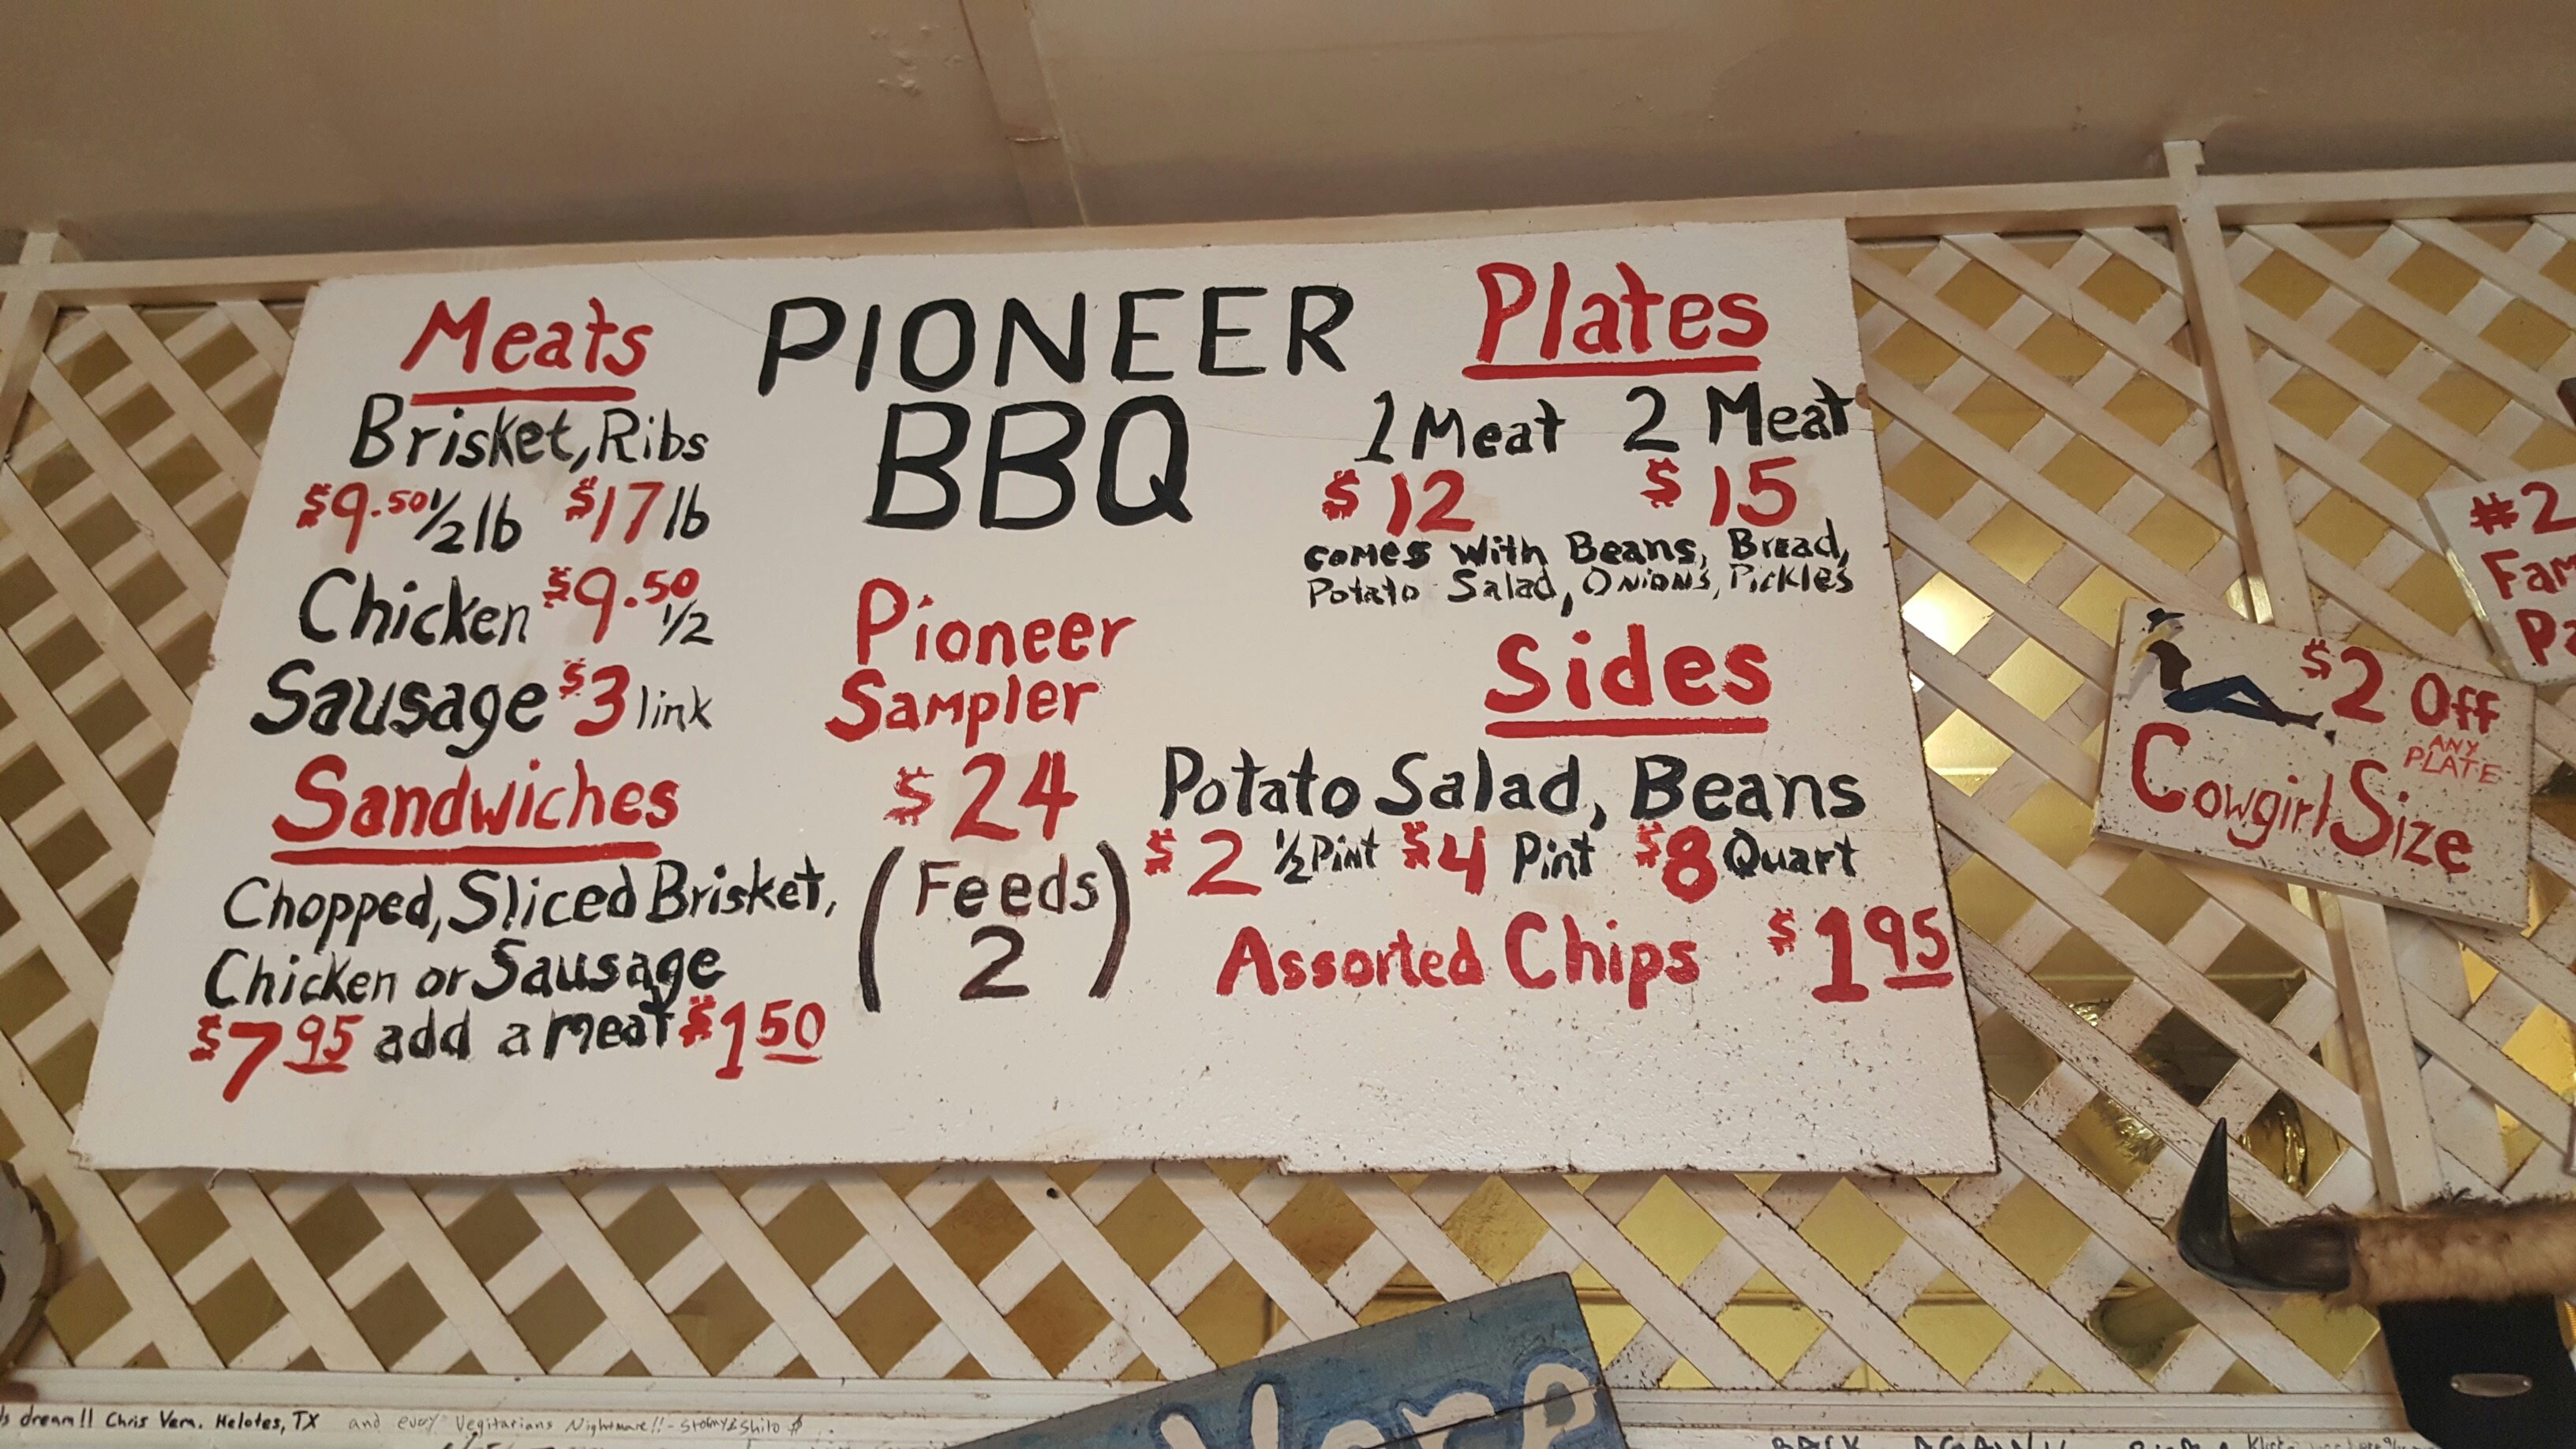 PIONEER
BBQ
Meats
Brisket, Ribs
$9.50 1/2 lb $17 lb
Chicken $9.50 1/2
Sausage $3 link
Sandwiches
Chopped, Sliced Brisket,
Chicken or Sausage
$7 95 add a meat $1 50
Pioneer
Sampler
$24
(Feeds
2)
Plates
1 Meat 2 Meat
$12 $15
comes with Beans, Bread,
Potato Salad, Onions, Pickles
Sides
Potato Salad, Beans
$2 1/2 Pint $4 Pint $8 Quart
Assorted Chips $1 95
$2 Off
ANY
PLATE
Cowgirl Size
#2
Fam
Pa
ds dream!! Chris Vern. Helotes, TX and every Vegitarians Nightmare!! - Stormy & Shilo